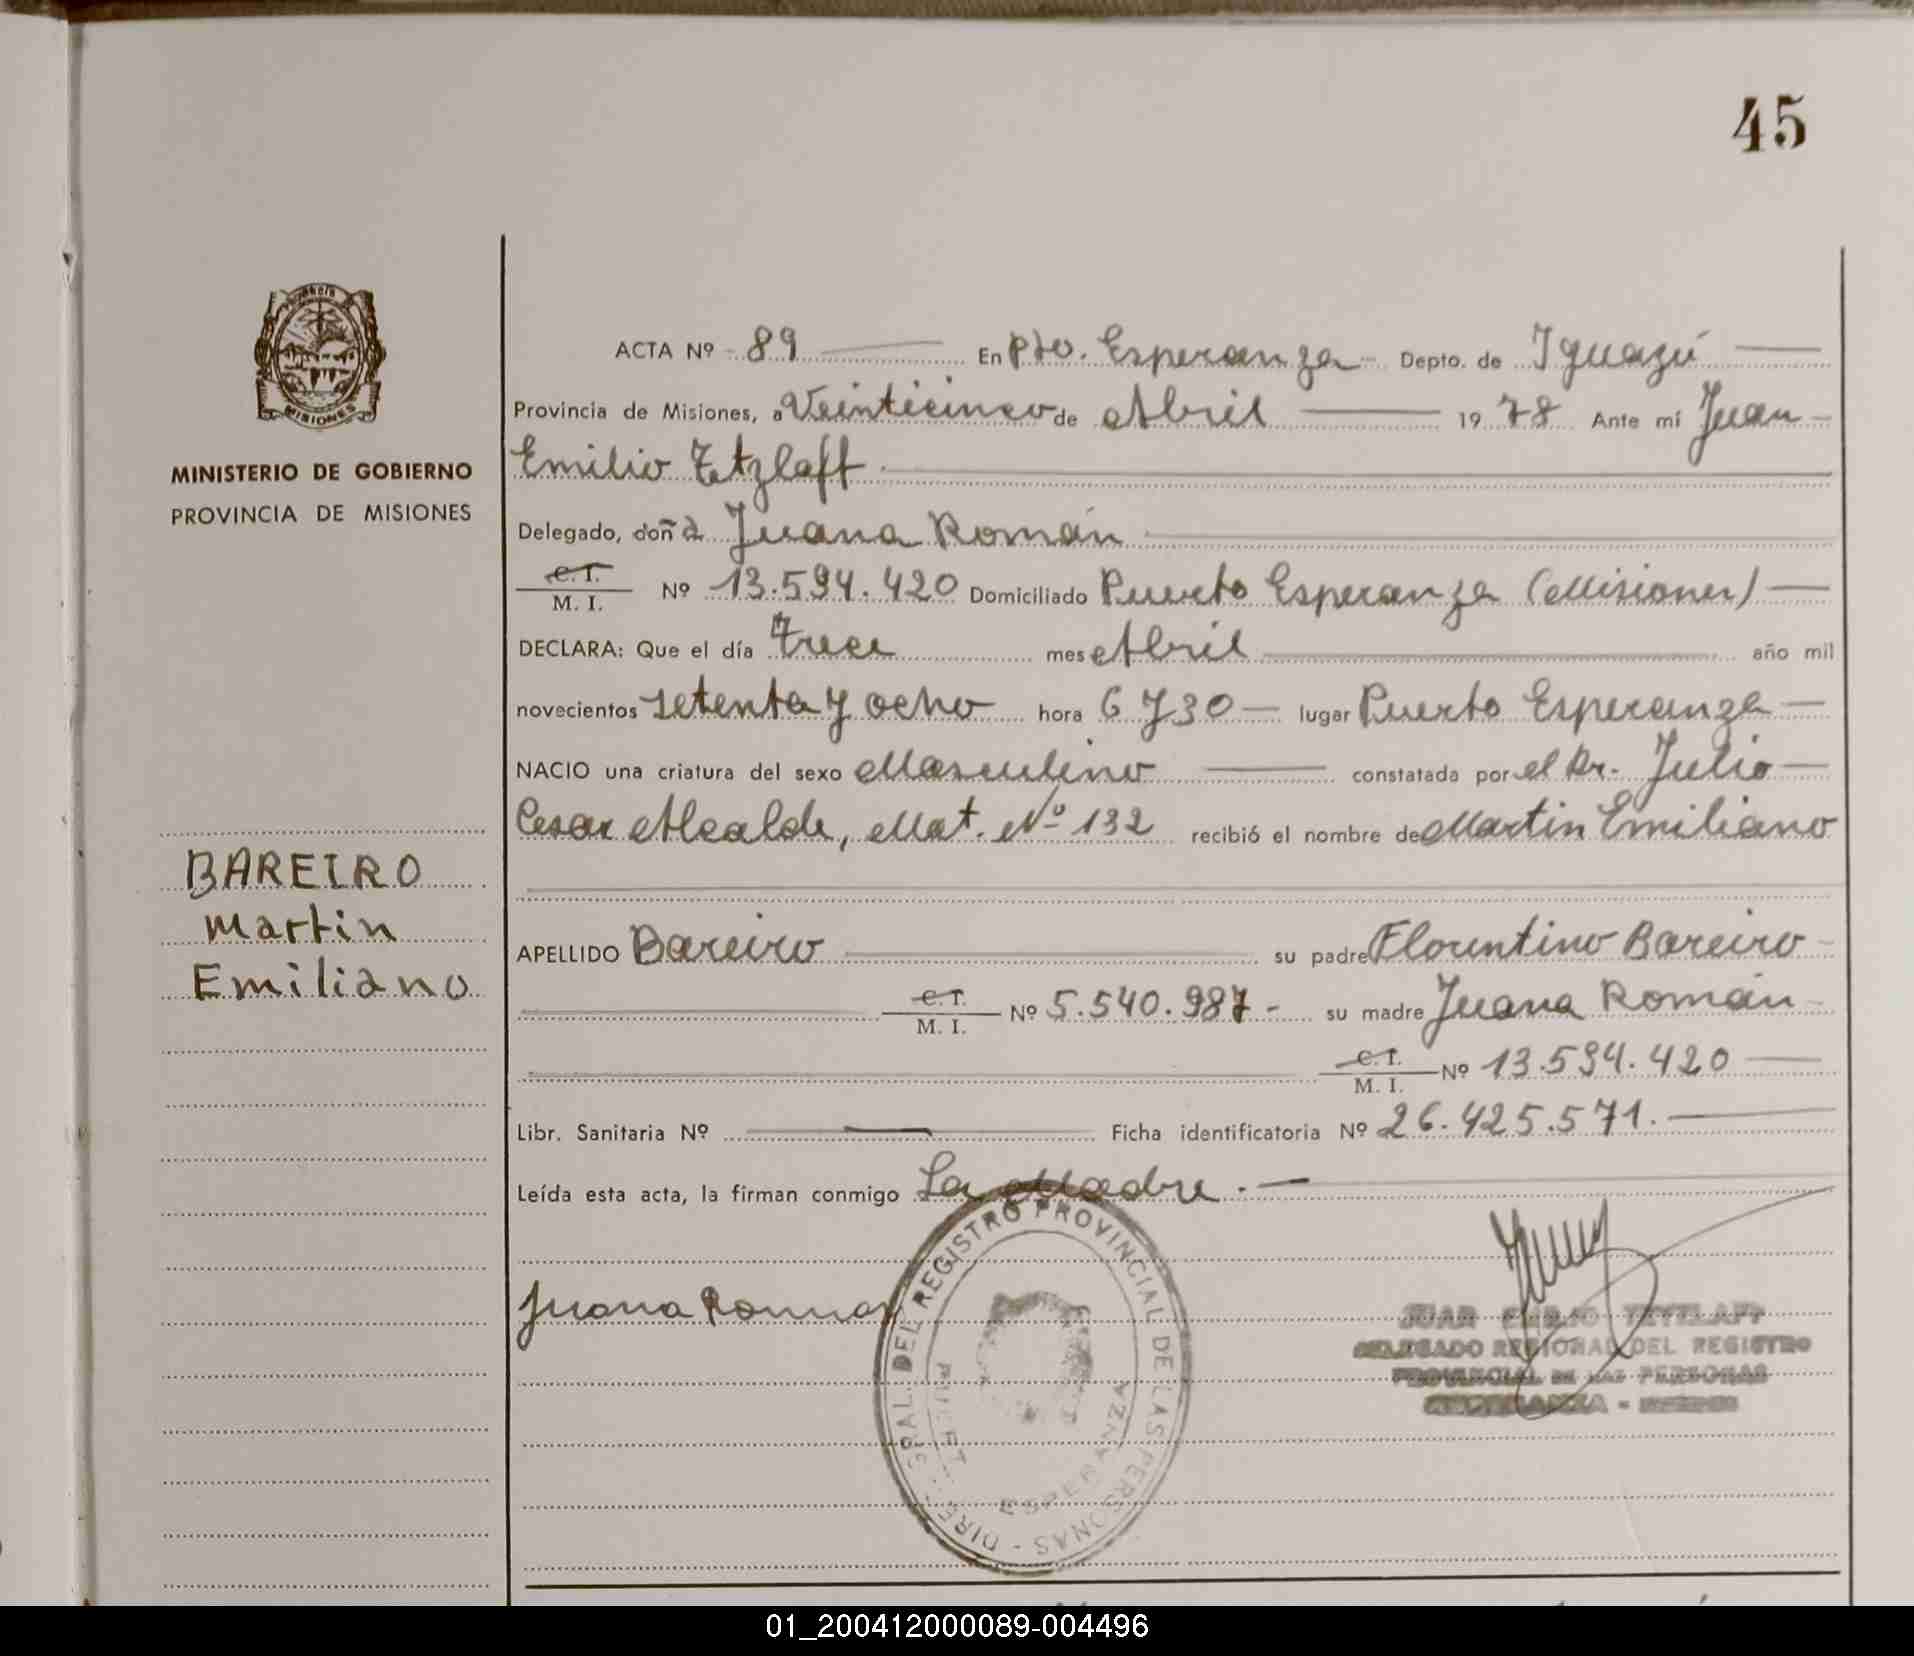 45
MISIONES
MINISTERIO DE GOBIERNO
PROVINCIA DE MISIONES
BAREIRO
Martin
Emiliano
ACTA Nº 89 En Pto. Esperanza Depto. de Iguazú
Provincia de Misiones, a Veinticinco de Abril 19 78 Ante mí Juan
Emilio Tetzlaff
Delegado, doña Juana Román
C. I. M. I. Nº 13.594.420 Domiciliado Puerto Esperanza (Misiones)
DECLARA: Que el día Trece mes Abril año mil
novecientos setenta y ocho hora 6 y 30 lugar Puerto Esperanza
NACIO una criatura del sexo Masculino constatada por el Dr. Julio
Cesar Alcalde, Mat. Nº 132 recibió el nombre de Martin Emiliano
APELLIDO Bareiro su padre Florentino Bareiro
C. I. M. I. Nº 5.540.987 - su madre Juana Román
C. I. M. I. Nº 13.594.420
Libr. Sanitaria Nº Ficha identificatoria Nº 26.425.571.
Leída esta acta, la firman conmigo La Madre.
Juana Roman
DEL REGISTRO PROVINCIAL DE LAS PERSONAS
ESPERANZA
JUAN EMILIO TETZLAFF
DELEGADO REGIONAL DEL REGISTRO
PROVINCIAL DE LAS PERSONAS
ESPERANZA - MISIONES
01_200412000089-004496